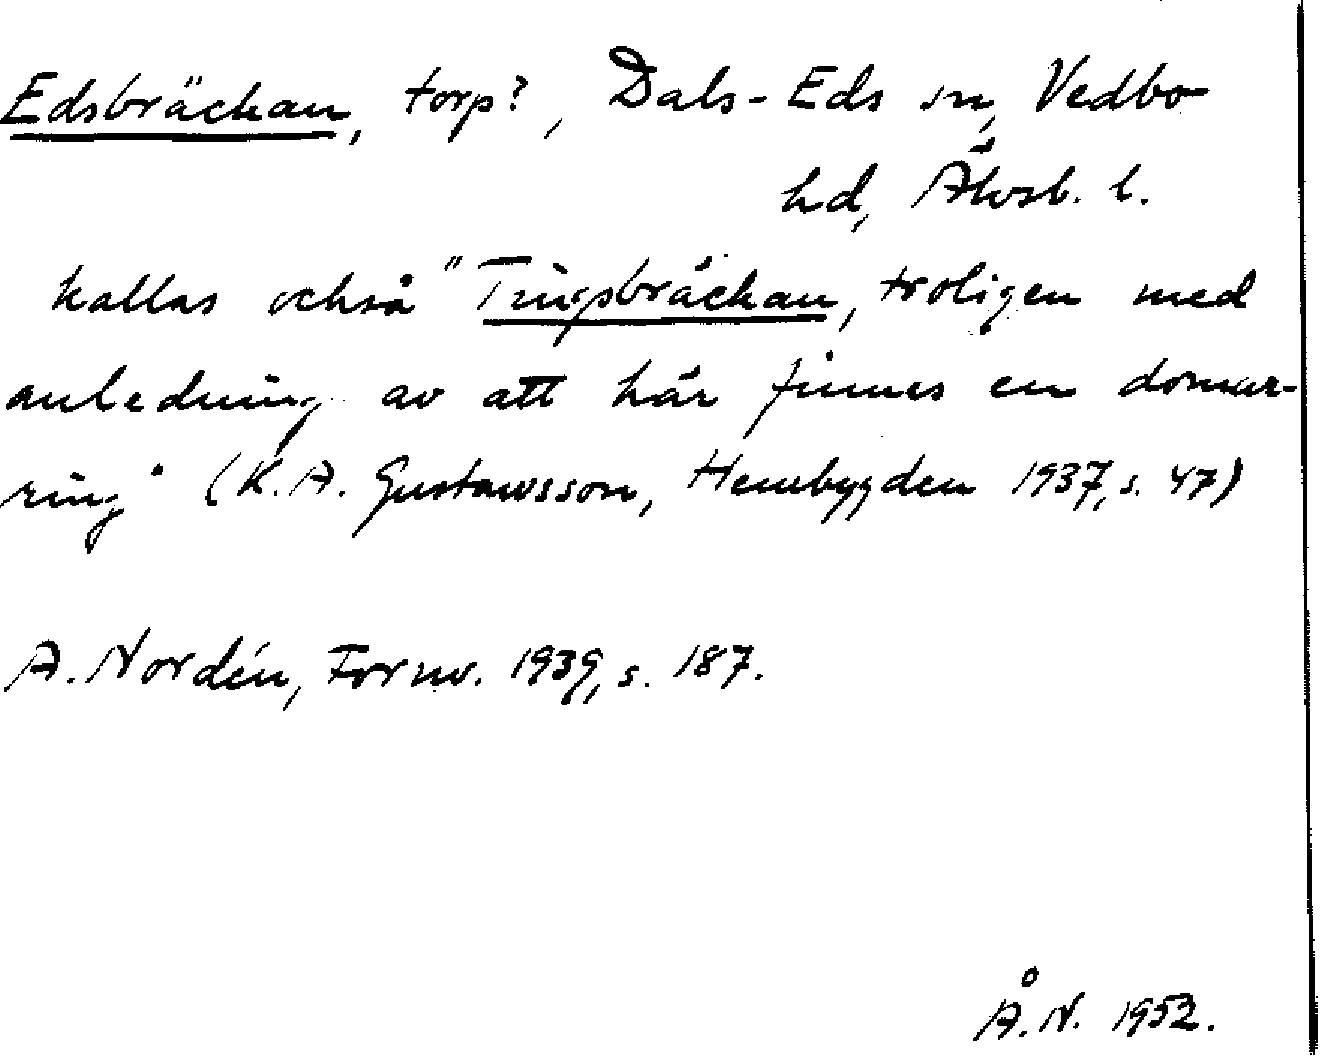 Edsbräckan, torp?, Dals-Eds sn, Vedbo
hd, Älvsb. l.
kallas också "Tingsbräckan, troligen med
anledning av att här finnes en domar-
ring" (K.A. Gustawsson, Hembygden 1937, s. 47)
A. Nordén, Fornv. 1939, s. 187.
Å.N. 1952.